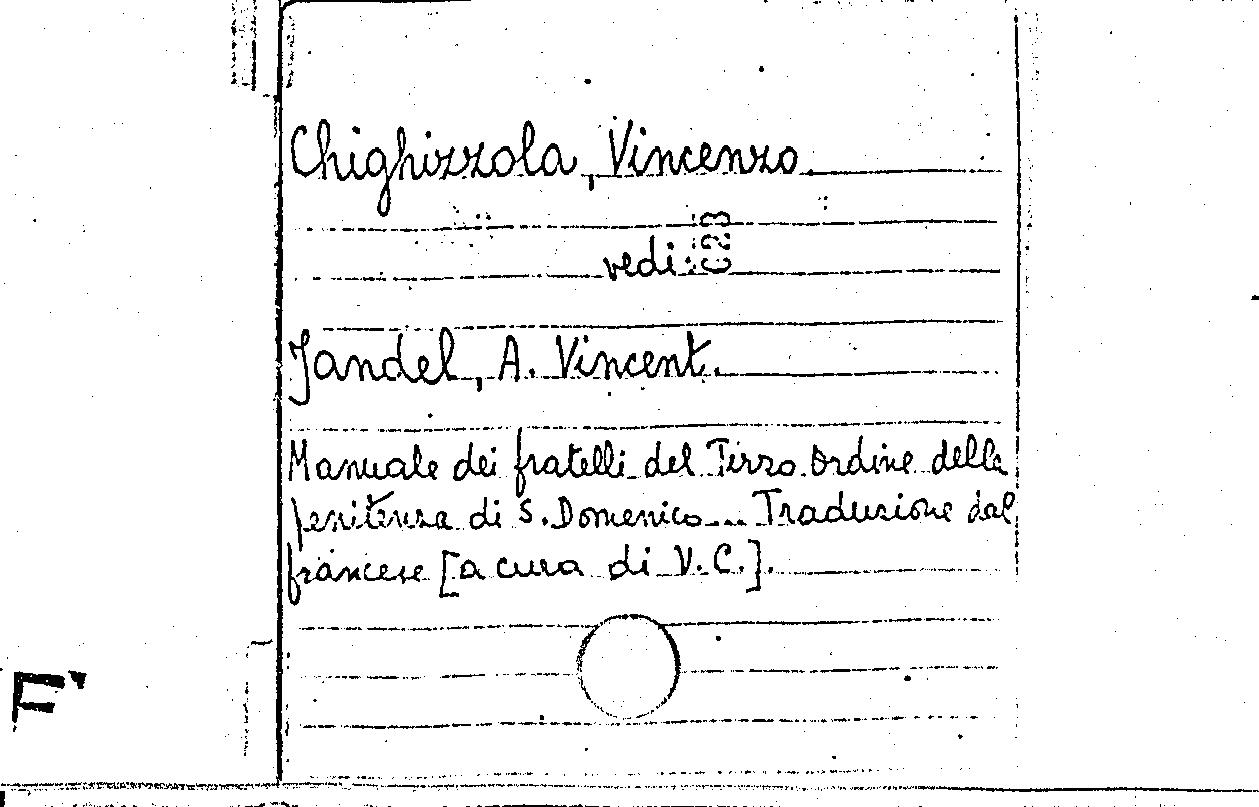 Chighizzola, Vincenzo.
vedi:
Jandel, A. Vincent.
Manuale dei fratelli del Terzo Ordine della
penitenza di S. Domenico... Traduzione dal
francese [a cura di V. C.].